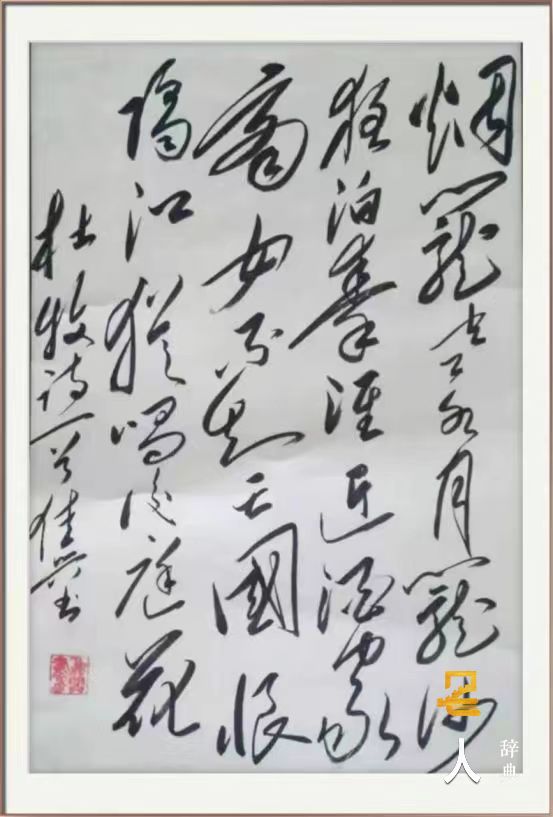 烟籠寒水月籠沙
夜泊秦淮近酒家
商女不知亡國恨
隔江猶唱後庭花
杜牧诗一首 书
名人
辞典